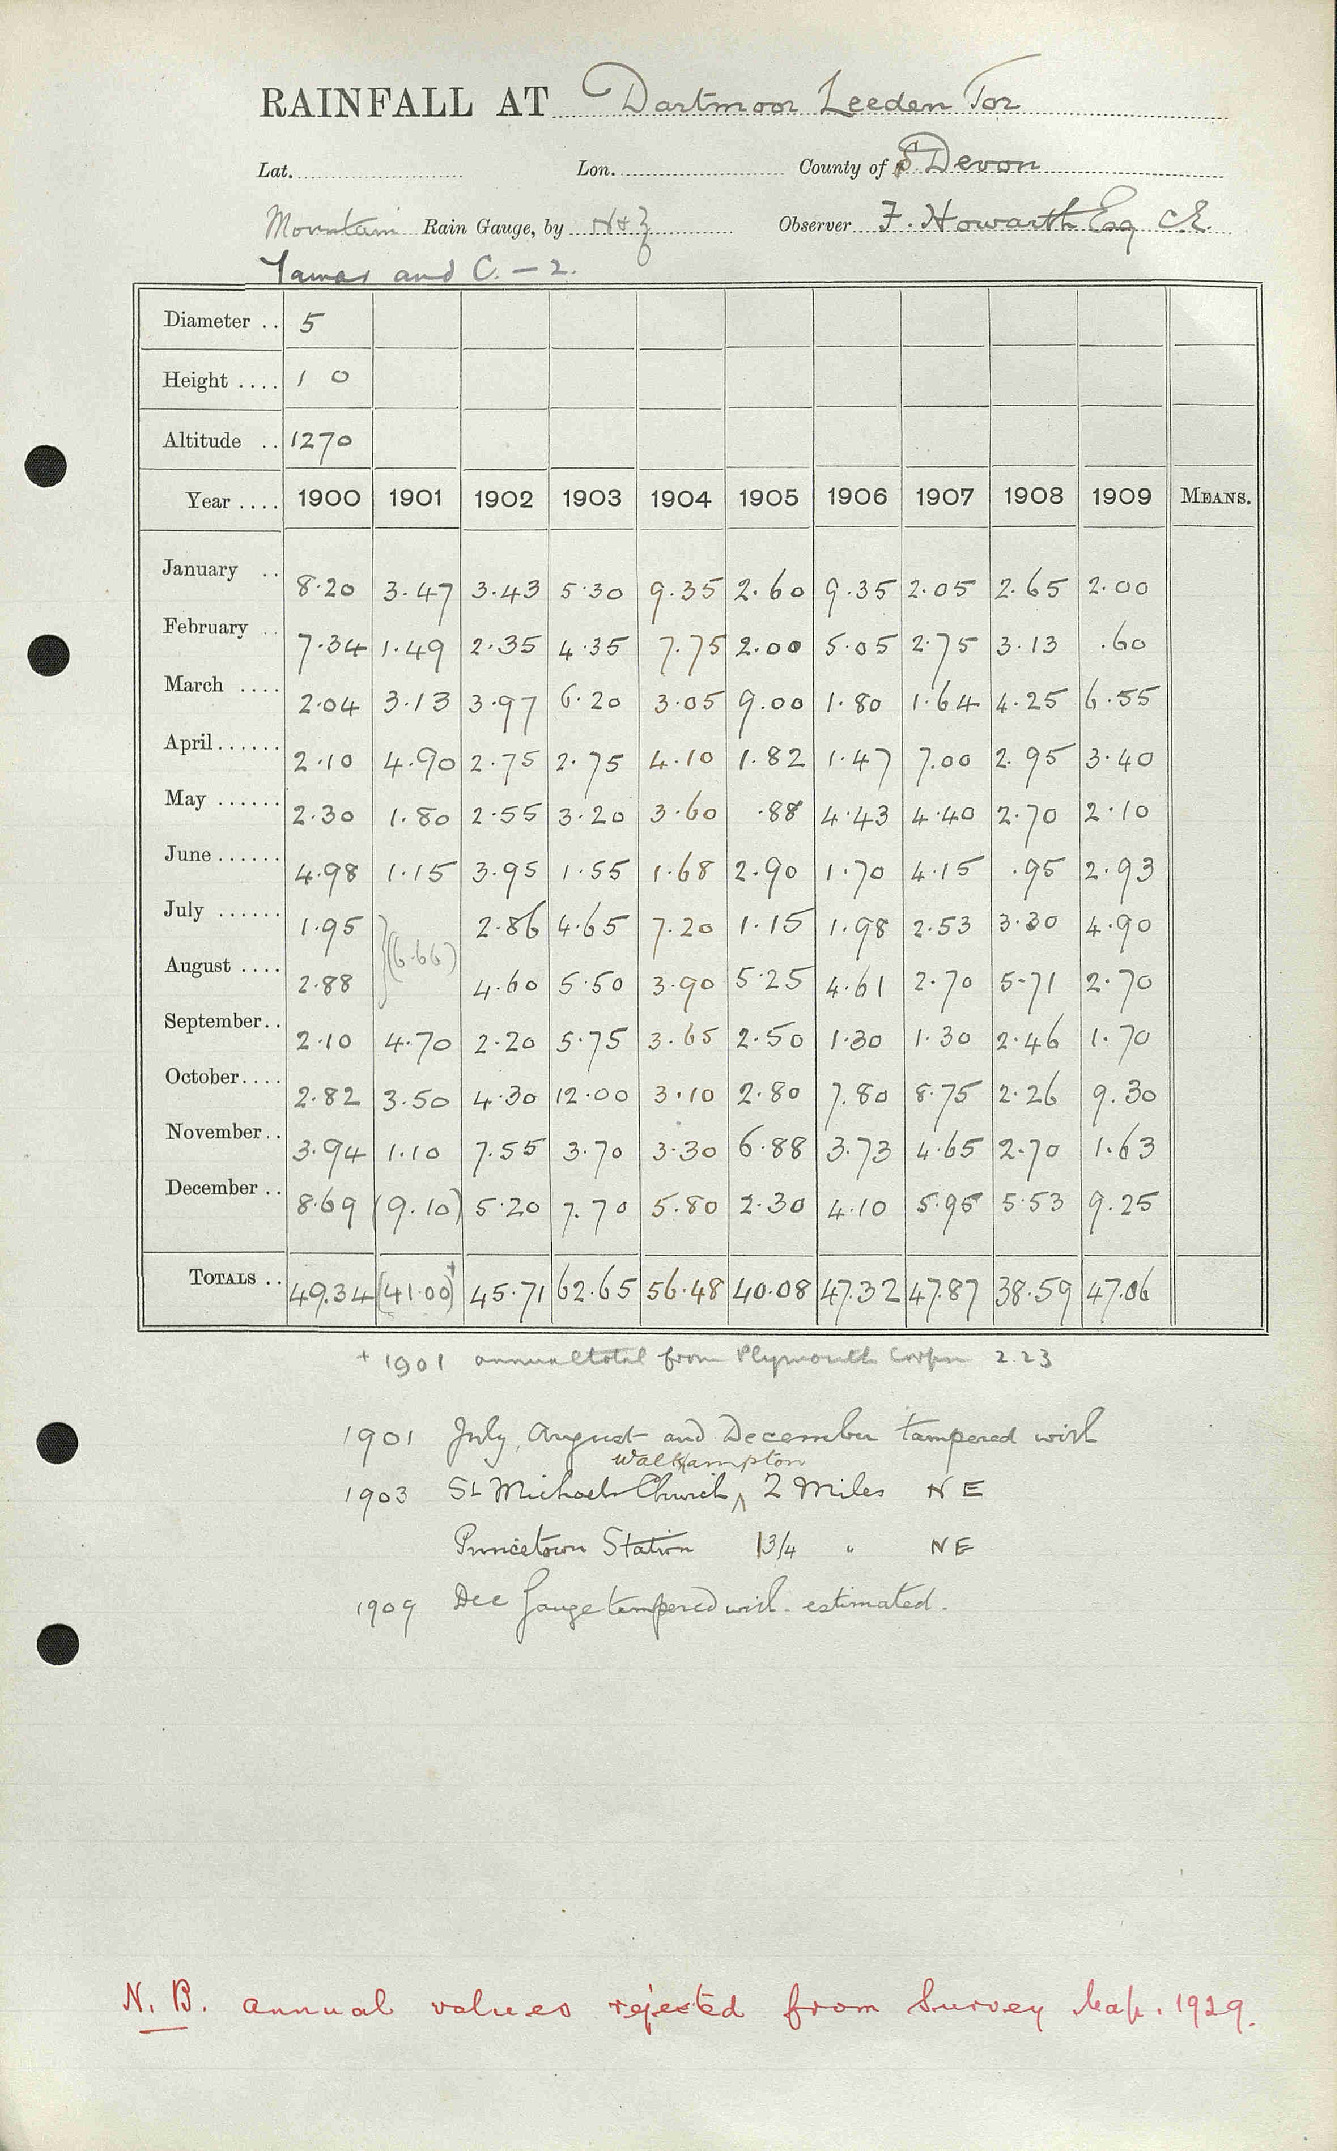 RAINFALL AT Dartmoor Leeden Tor
Lat. Lon. County of S Devon
Mountain Rain Gauge, by N+Z Observer F. Howarth Esq C.E.
Tamar and C. - 2.
Diameter .. 5
Height .... 1 0
Altitude .. 1270
Year .... 1900 1901 1902 1903 1904 1905 1906 1907 1908 1909 MEANS.
January .. 8.20 3.47 3.43 5.30 9.35 2.60 9.35 2.05 2.65 2.00
February .. 7.34 1.49 2.35 4.35 7.75 2.00 5.05 2.75 3.13 .60
March .... 2.04 3.13 3.97 6.20 3.05 9.00 1.80 1.64 4.25 6.55
April...... 2.10 4.90 2.75 2.75 4.10 1.82 1.47 7.00 2.95 3.40
May ...... 2.30 1.80 2.55 3.20 3.60 .88 4.43 4.40 2.70 2.10
June...... 4.98 1.15 3.95 1.55 1.68 2.90 1.70 4.15 .95 2.93
July ...... 1.95 2.86 4.65 7.20 1.15 1.98 2.53 3.30 4.90
(6.66)
August .... 2.88 4.60 5.50 3.90 5.25 4.61 2.70 5.71 2.70
September.. 2.10 4.70 2.20 5.75 3.65 2.50 1.30 1.30 2.46 1.70
October.... 2.82 3.50 4.30 12.00 3.10 2.80 7.80 8.75 2.26 9.30
November.. 3.94 1.10 7.55 3.70 3.30 6.88 3.73 4.65 2.70 1.63
December .. 8.69 (9.10) 5.20 7.70 5.80 2.30 4.10 5.95 5.53 9.25
TOTALS .. 49.34 (41.00)+ 45.71 62.65 56.48 40.08 47.32 47.87 38.59 47.06
+ 1901 annual total from Plymouth Corpn 2.23
1901 July, August and December tampered with
Walkhampton
1903 St Michaels Church, 2 Miles NE
Princetown Station 1 3/4 " NE
1909 Dec Gauge tampered with. estimated.
N.B. annual values rejected from Survey Map. 1929.